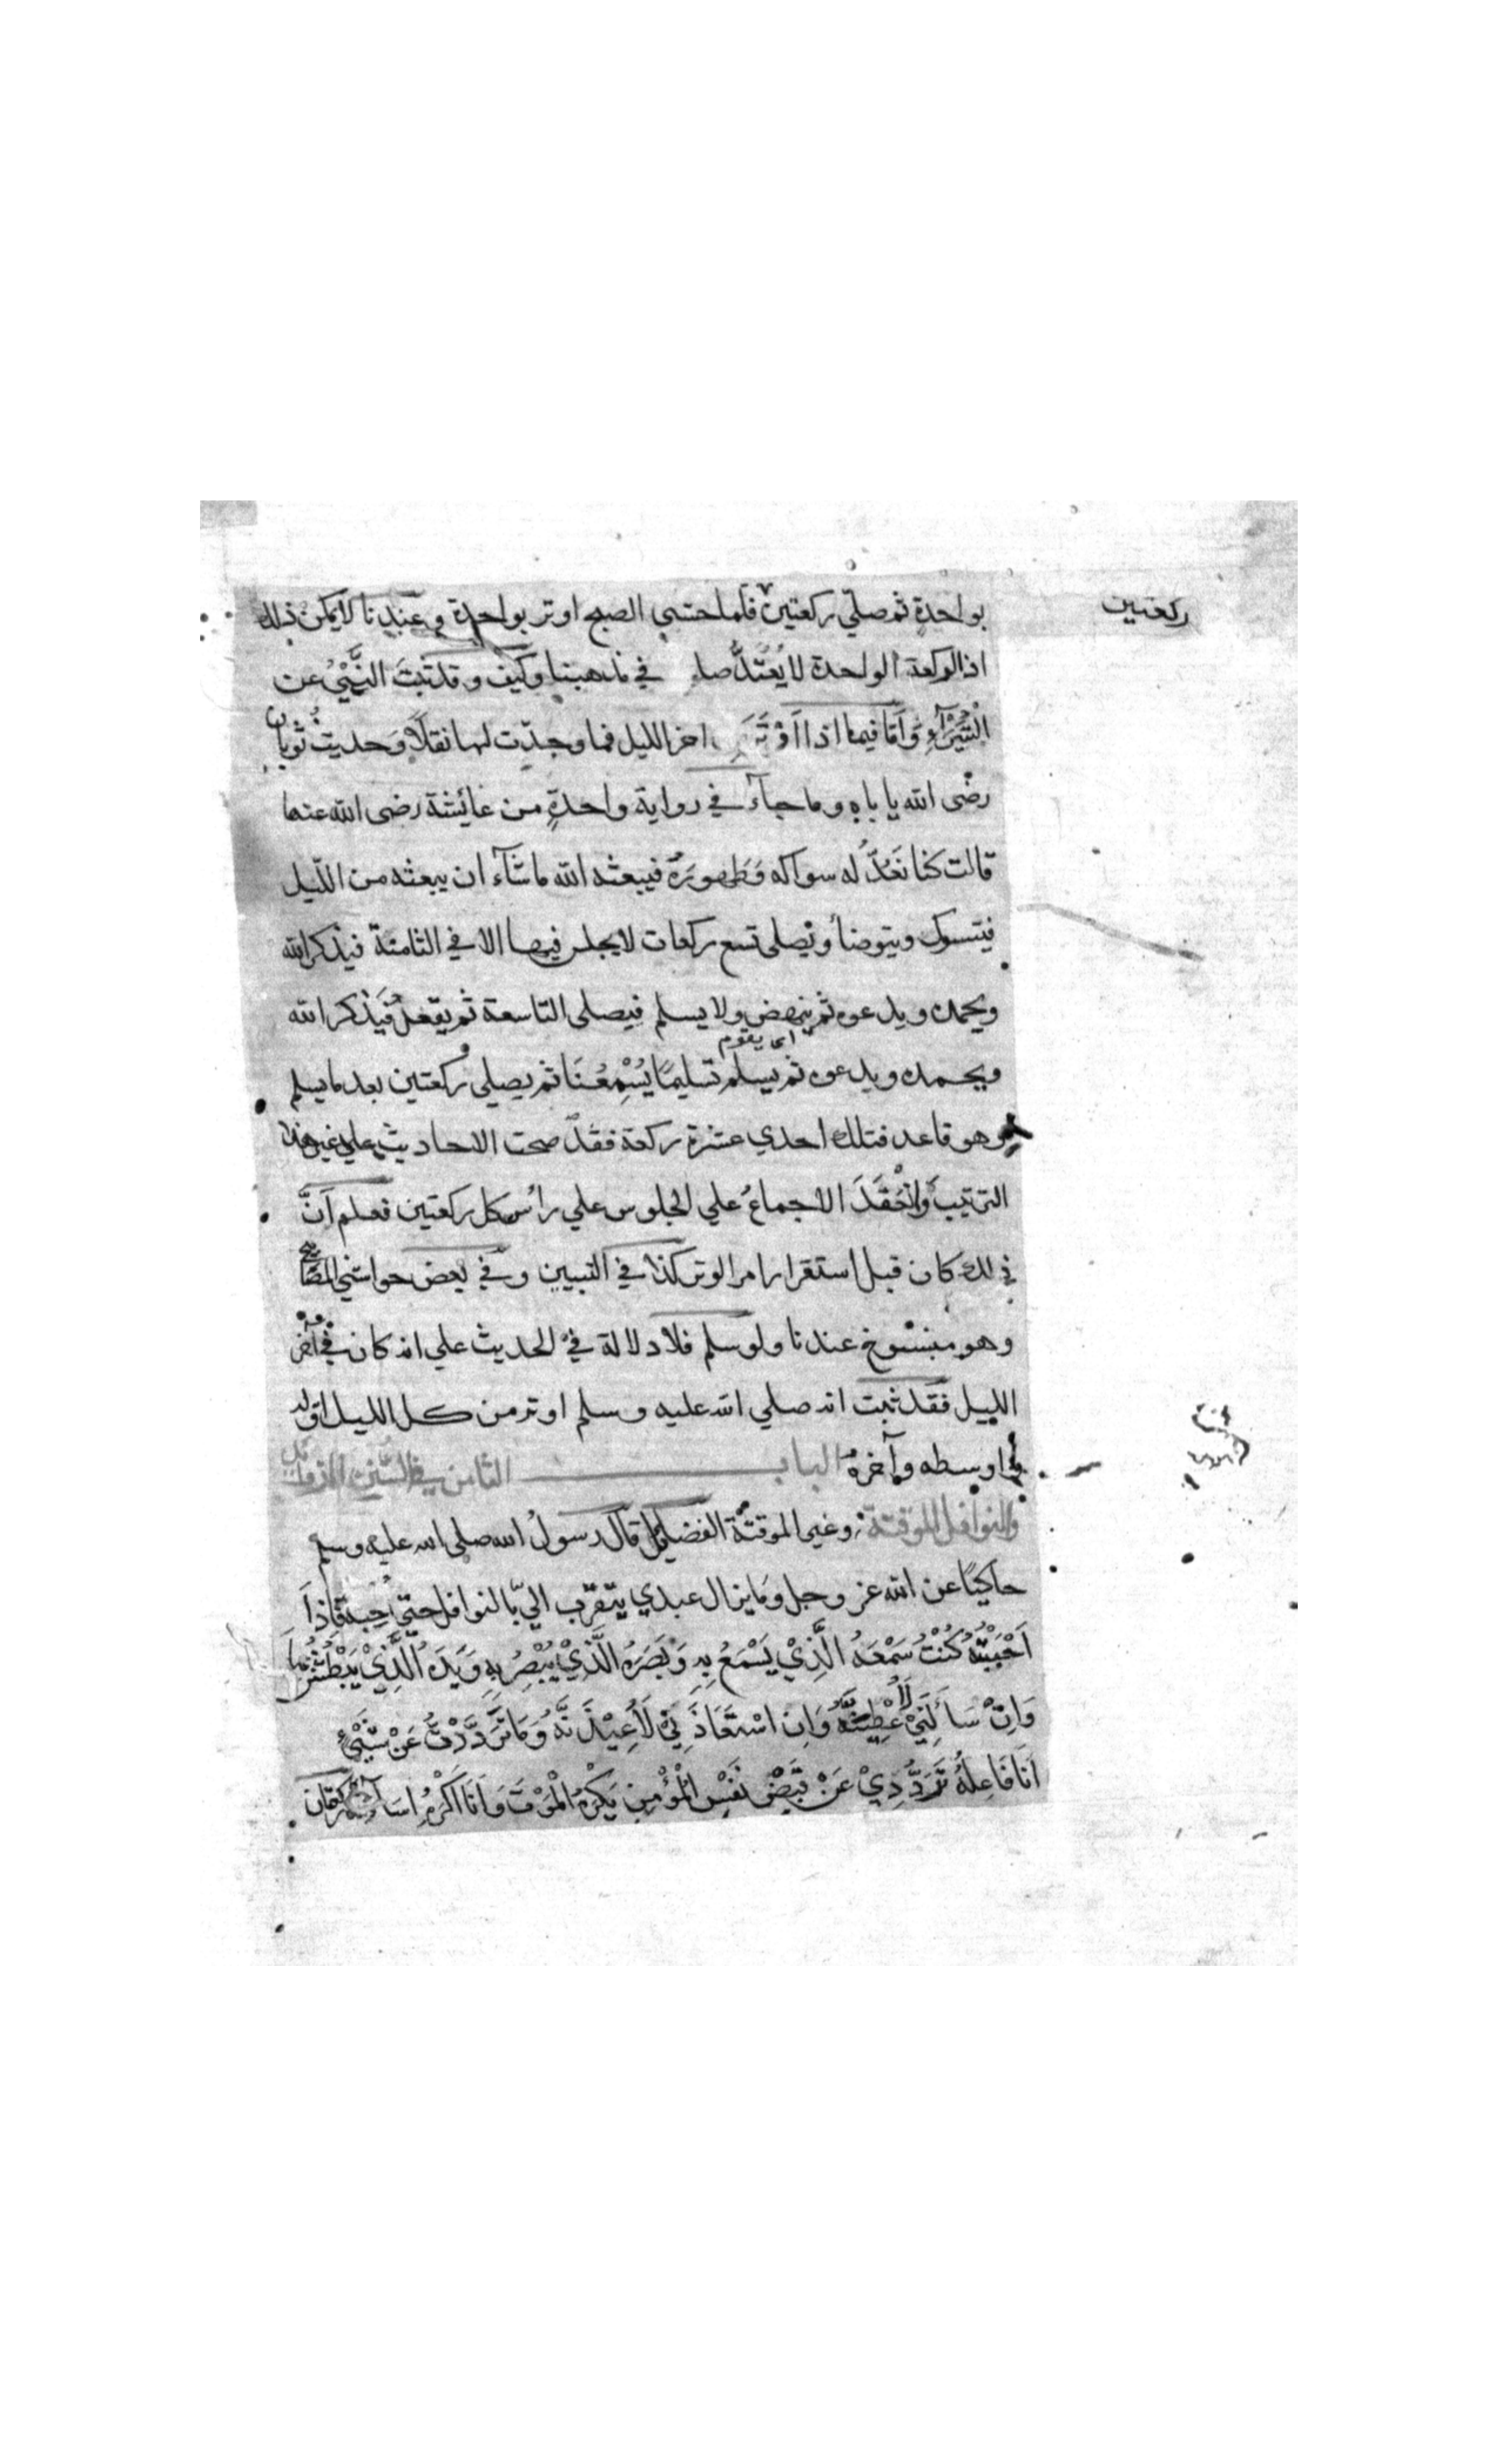 ركعتين
بواحدة ثم صلي ركعتين فلما خشي الصبح اوتر بواحدة وعندنا لا يمكن ذلك
اذ الركعة الواحدة لا يُعْتدُّ في مذهبنا وكيف وقد ثبتَ النَّهْيُ عن
الْبُتَيْرَآءِ وَاَمّا فيما اذا اَوْتَرَ اخر الليل فما وجدّت لها نقلاً وَحديثُ ثوبان
رضى الله يا باه وما جآء في رواية واحدةٍ من عائشة رضى الله عنها
قالت كنا نَعُدُّ له سواكه وَطَهورَهُ فيبعثه الله ما شآء ان يبعثه من اللّيل
فيتسوك ويتوضأ ويصلى تسع ركعات لا يجلس فيها الا في الثامنة فيذكر الله
ويحمده ويدعوه ثم ينهض ولا يسلم فيصلى التاسعة ثم يقعدُ فيَذكر الله
اى يقوم
ويحمده ويدعوه ثم يسلم تسليمًا يُسْمِعُنَا ثم يصلى ركعتين بعد ما يسلم
وهو قاعد فتلك احدي عشرة ركعة فقدْ صحت الاحاديث علي غير هذا
الترتيب وَانْعَقَدَ الاجماعُ علي الجلوس علي رأس كل ركعتين فعلم اَنَّ
ذلك كان قبل استقرار امر الوتر كذا في التبيين وفي بعض حواشي المصابيح
وهو منسوخ عندنا ولو سلم فلا دلالة في الحديث علي انه كان في آخر
الليل فقد ثبت انه صلي الله عليه وسلم اوتر من كل الليل اوله
واوسطه وآخره الباب الثامن في السُّنن والنوافل
والنوافل الموقتة وغير الموقتة الفضيلة قال رسولُ الله صلى الله عليه وسلم
حاكيًا عن الله عز وجل وما يزال عبدي يتقرب اليّ بالنوافل حتي اُحِبَّهُ فَاذَا
اَحْبَبْتُهُ كُنْتُ سَمْعَهُ الَّذِيْ يَسْمَعُ بِهِ وَبَصَرَهُ الَّذِيْ يُبْصِرُ بِهِ وَيَدَهُ الَّذِيْ يَبْطُشُ بِهَا
وَاِنْ سَأَلَنِيْ لَأُعْطِيَنَّهُ وَاِنِ اسْتَعَاذَنِيْ لَأُعِيْذَنَّهُ وَمَا تَرَدَّدْتُ عَنْ شَيْءٍ
اَنَا فَاعِلُهُ تَرَدُّدِيْ عَنْ قَبْضِ نَفْسِ الْمُؤْمِنِ يَكْرَهُ الْمَوْتَ وَاَنَا اَكْرَهُ